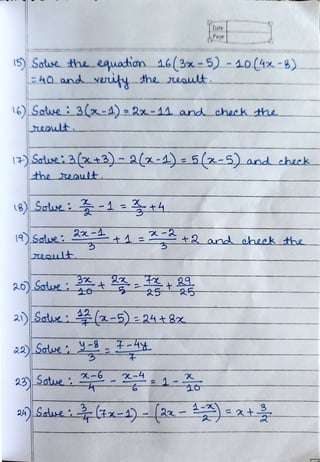 Date
Page
15) Solve the equation 16(3x-5) - 10(4x-8)
=40 and verify the result.
16) Solve : 3(x-1) = 2x-11 and check the
result.
17) Solve : 3(x+3) - 2(x-1) = 5(x-5) and check
the result.
18) Solve : x/2 - 1 = x/3 + 4
19) Solve : 2x-1/3 + 1 = x-2/3 + 2 and check the
result.
20) Solve : 3x/10 + 2x/5 = 7x/25 + 29/25
21) Solve : 12/7 (x-5) = 24+8x
22) Solve : y-8/3 = 7-4y/7
23) Solve : x-6/4 - x-4/6 = 1 - x/10
24) Solve : 3/4 (7x-1) - (2x - 1-x/2) = x + 3/2